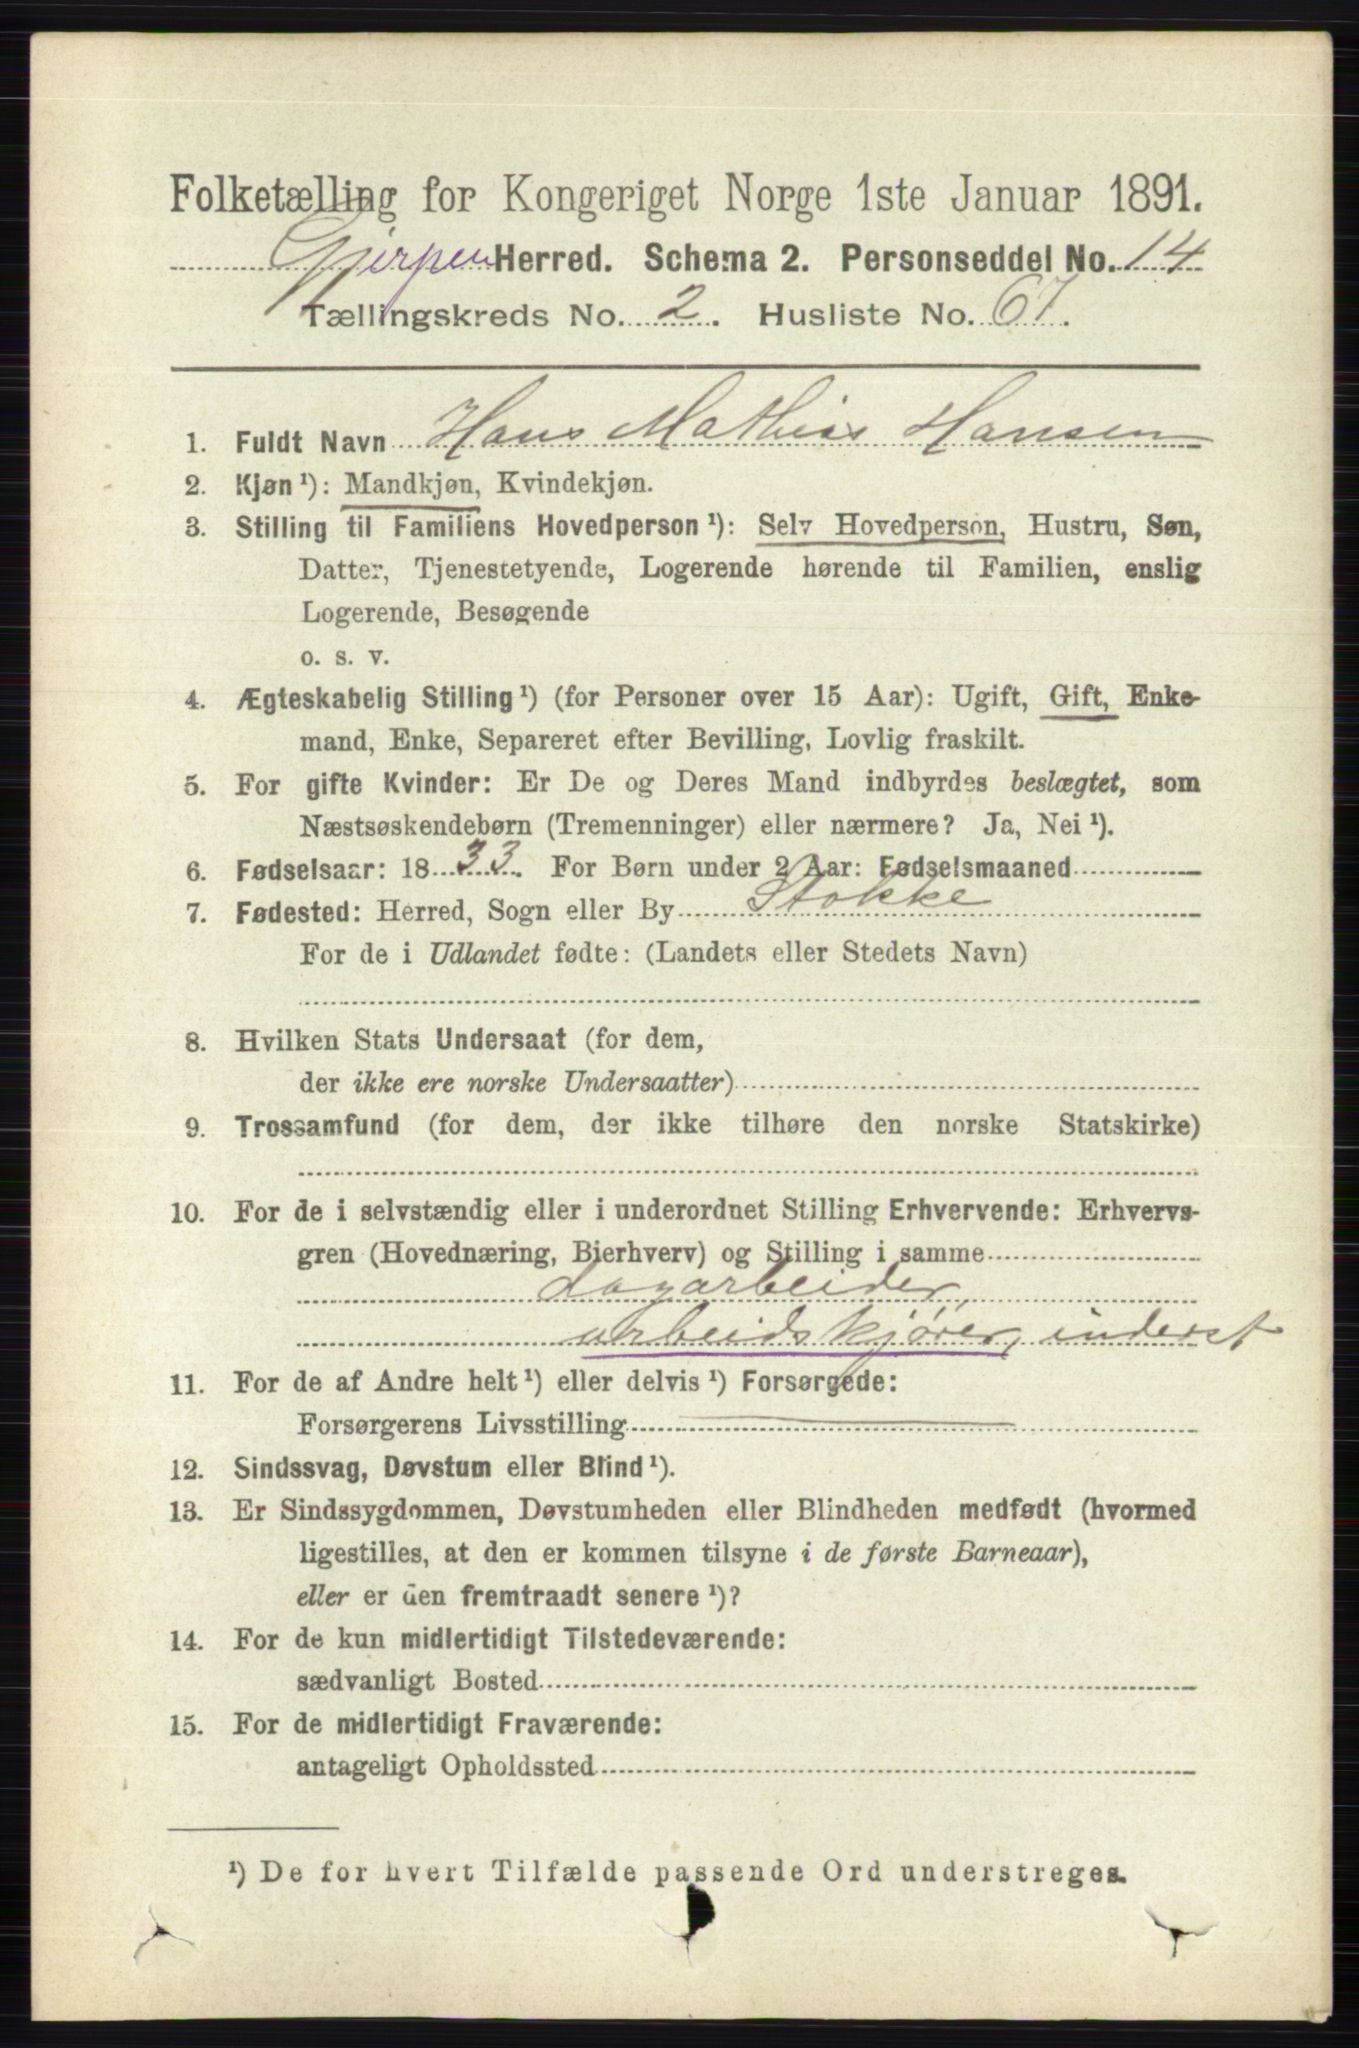 Folketælling for Kongeriget Norge 1ste Januar 1891.
Gjerpen Herred. Schema 2. Personseddel No. 14
Tællingskreds No. 2. Husliste No. 67.
1. Fuldt Navn Hans Mathias Hansen
2. Kjøn ¹): Mandkjøn, Kvindekjøn.
3. Stilling til Familiens Hovedperson ¹): Selv Hovedperson, Hustru, Søn,
Datter, Tjenestetyende, Logerende hørende til Familien, enslig
Logerende, Besøgende
o. s. v.
4. Ægteskabelig Stilling ¹) (for Personer over 15 Aar): Ugift, Gift, Enke-
mand, Enke, Separeret efter Bevilling, Lovlig fraskilt.
5. For gifte Kvinder: Er De og Deres Mand indbyrdes beslægtet, som
Næstsøskendebørn (Tremenninger) eller nærmere? Ja, Nei ¹).
6. Fødselsaar: 1833. For Børn under 2 Aar: Fødselsmaaned
7. Fødested: Herred, Sogn eller By Stokke
For de i Udlandet fødte: (Landets eller Stedets Navn)
8. Hvilken Stats Undersaat (for dem,
der ikke ere norske Undersaatter)
9. Trossamfund (for dem, der ikke tilhøre den norske Statskirke)
10. For de i selvstændig eller i underordnet Stilling Erhvervende: Erhvervs-
gren (Hovednæring, Bierhverv) og Stilling i samme
dagarbeider,
arbeidskjører, inderst
11. For de af Andre helt ¹) eller delvis ¹) Forsørgede:
Forsørgerens Livsstilling
12. Sindssvag, Døvstum eller Blind ¹).
13. Er Sindssygdommen, Døvstumheden eller Blindheden medfødt (hvormed
ligestilles, at den er kommen tilsyne i de første Barneaar),
eller er den fremtraadt senere ¹)?
14. For de kun midlertidigt Tilstedeværende:
sædvanligt Bosted
15. For de midlertidigt Fraværende:
antageligt Opholdssted
¹) De for hvert Tilfælde passende Ord understreges.